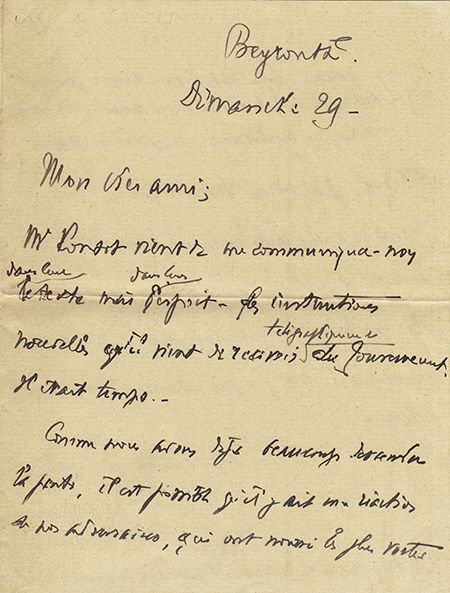 Beyrouth.
Dimanche 29 –
Mon cher ami,
Mr Ponsot vient de me communiquer – non
dans leur dans leur
texte mais l'esprit – les instructions
télégraphiquement
nouvelles qu'il vient de recevoir du Gouvernement.
Il était temps. –
Comme nous avons déjà beaucoup descendu
la pente, il est possible qu'il y ait une réaction
de nos adversaires, qui ont nourri les plus vastes